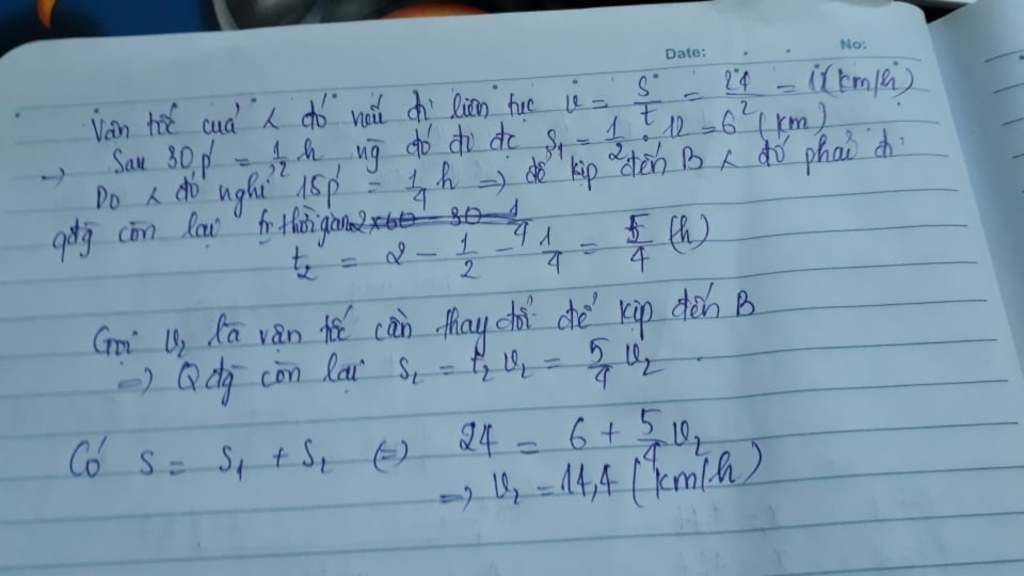 Date: No:
Vận tốc của x đó nếu đi liên tục v = s/t = 24/2 = 12 (km/h)
→ Sau 30p' = 1/2 h, ng đó đi đc s₁ = 1/2 . 12 = 6 (km)
Do x đó nghỉ 15p' = 1/4 h => để kịp đến B x đó phải đi
qđg còn lại tr thời gian
t₂ = 2 - 1/2 - 1/4 = 5/4 (h)
Gọi v₂ là vận tốc cần thay đổi để kịp đến B
=> Qđg còn lại s₂ = t₂ v₂ = 5/4 v₂
Có s = s₁ + s₂ (=) 24 = 6 + 5/4 v₂
=> v₂ = 14,4 (km/h)